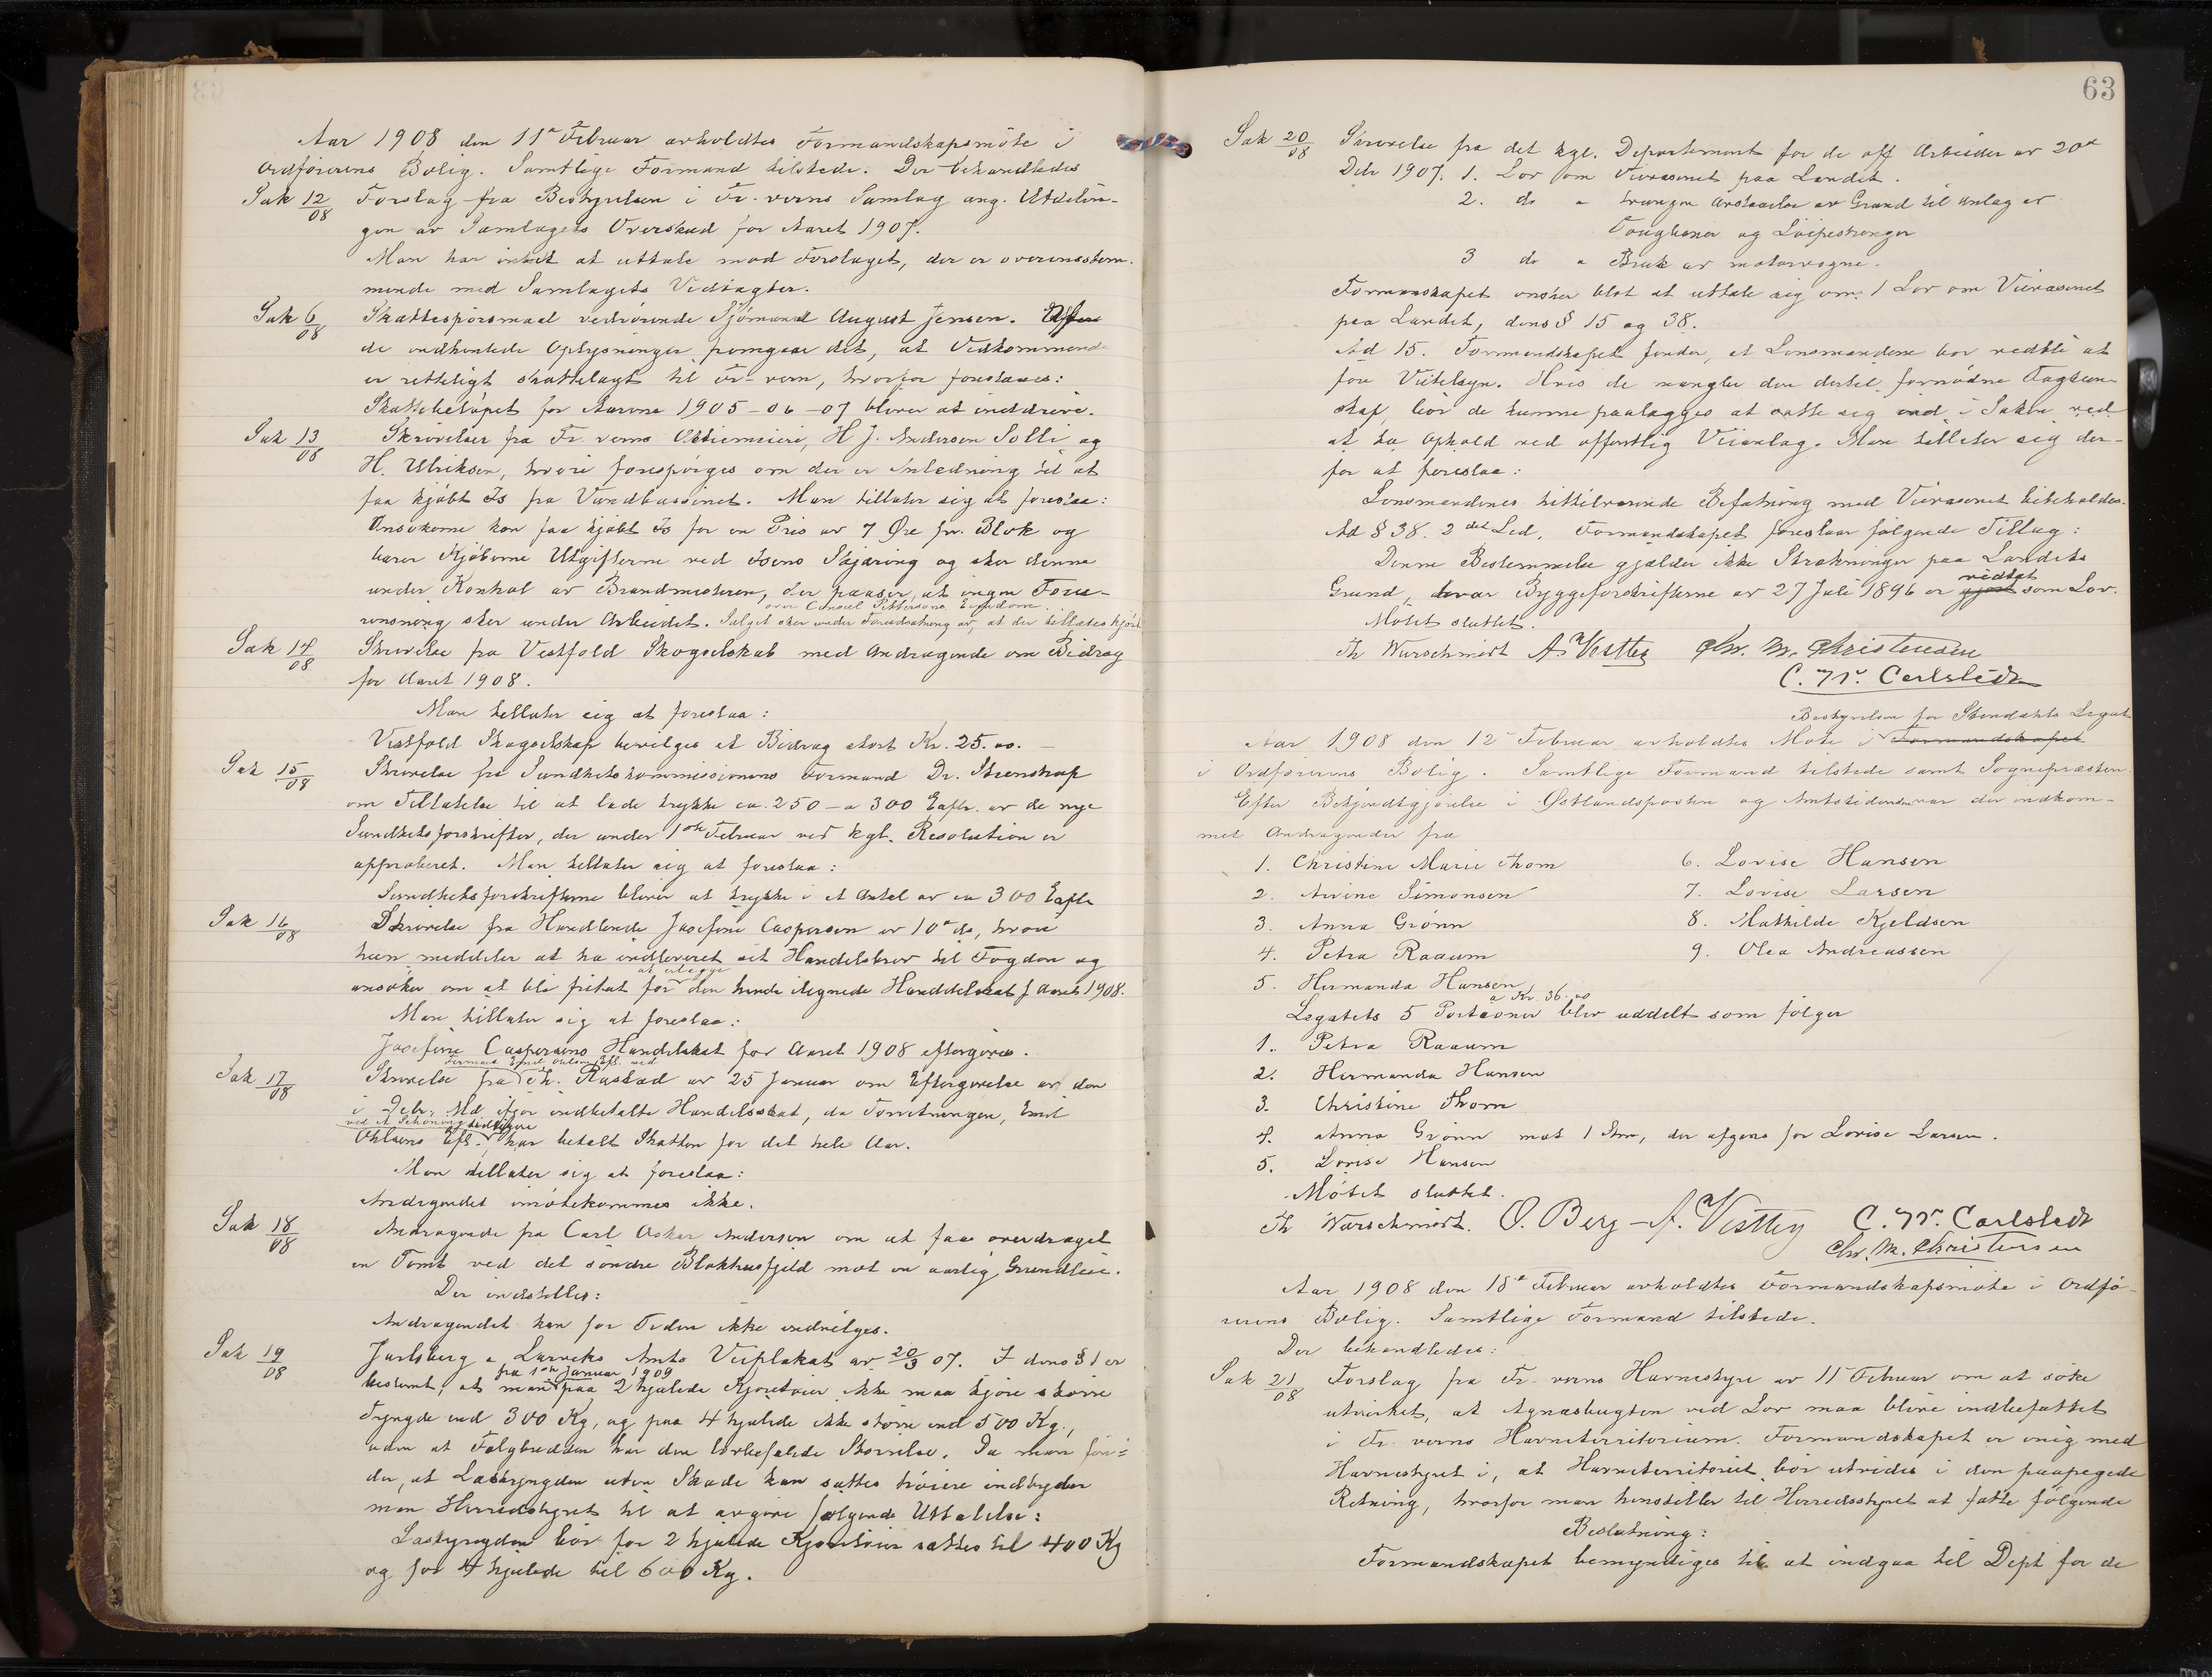 Aar 1908 den 11te Februar avholdtes Formandskapsmöte i
Ordförerens Bolig. Samtlige Formænd tilstede. Der behandledes
Sak 12/08 Forslag fra Bestyrelsen i Fr.verns Samlag ang. Utdelin-
gen av Samlagets Overskud for Aaret 1907.
Man har intet at uttale mod Forslaget, der er overensstem-
mende med Samlagets Vedtægter.
Sak 6/08 Skattespörsmaal vedrörende Sjömand August Jensen. Af
de indhentede Oplysninger fremgaar det, at Vedkommende
er retteligt skattelagt til Fr-vern, hvorfor foreslaaes:
Skattebelöpet for Aarene 1905-06-07 bliver at inddrive.
Sak 13/08 Skrivelser fra Fr. verns Aktiemeieri, H J. Andersen Solli og
H. Ulriksen, hvori forespörges om der er Anledning til at
faa kjöbt Is fra Vandbassinet. Man tillater sig at foreslaa:
Ansökerne kan faa kjöbt Is for en Pris av 7 Öre pr. Blok og
bærer Kjöberne Utgifterne ved Isens Skjæring og sker denne
under Kontrol av Brandmesteren, der paaser, at ingen Foru-
over Consul Pettersens Eiendom.
rensning sker under Arbeidet. Salget sker under Forudsætning av, at der tillates kjört
Sak 14/08 Skrivelse fra Vestfold Skogselskab med Andragende om Bidrag
for Aaret 1908.
Man tillater sig at foreslaa:
Vestfold Skogselskap bevilges et Bidrag stort Kr. 25.00.
Sak 15/08 Skrivelse fra Sundhetskommissionens Formand Dr. Stenstrup
om Tillatelse til at lade trykke ca. 250 – a 300 Explr. av de nye
Sundhetsforskrifter, der under 1ste Februar ved kgl. Resolution er
approberet. Man tillater sig at foreslaa:
Sundhetsforskrifterne bliver at trykke i et Antal av ca 300 Explr
Sak 16/08 Skrivelse fra Handlende Josefine Caspersen av 10de ds, hvori
hun meddeler at ha indleveret sit Handelsbrev til Fogden og
at erlægge
ansöker om at bli fritat for den hende ilignede Handelsskat f Aaret 1908.
Man tillater sig at foreslaa:
Josefine Caspersens Handelskat for Aaret 1908 eftergives.
Firmaet Emil Ohlsens Eft. ved
Sak 17/08 Skrivelse fra Th. Rustad av 25 Januar om Eftergivelse av den
i Debr. Md. ifjor indbetalte Handelsskat, da Forretningen, Emil
ved A Schöning tidligere
Ohlsens Eft. har betalt Skatten for det hele Aar.
Man tillater sig at foreslaa:
Andragendet imötekommes ikke.
Sak 18/08 Andragende fra Carl Oskar Andersen om at faa overdraget
en Tomt ved det söndre Blokhusfjeld mot en aarlig Grundleie.
Der indstilles:
Andragendet kan for Tiden ikke indvilges.
Sak 19/08 Jarlsberg & Larviks Amts Veiplakat av 20/3 07. I dens § 1 er
fra 1ste Januar 1909
bestemt, at man paa 2 hjulede Kjöretöier ikke maa kjöre större
Tyngde end 300 Kg, og paa 4 hjulede ikke större end 500 Kg.,
uden at Fælgbredden har den lovbefalede Störrelse. Da man fin-
der, at Lastyngden uten Skade kan sættes höiere indbyder
man Herredstyret til at avgive fölgende Uttalelse:
Lastyngden bör for 2 hjulede Kjöretöier sættes til 400 Kg
og for 4 hjulede til 600 Kg.
63
Sak 20/08 Skrivelse fra det kgl. Departement for de off Arbeider av 20de
Debr 1907. 1. Lov om Veivæsenet paa Landet.
2. do „ tvungen Avstaaelse av Grund til Anlæg av
Taugbaner og Löipestrenger
3 do „ Bruk av motorvogne.
Formanskapet ønsker blot at uttale sig om: 1 Lov om Veivæsenet
paa Landet, dens § 15 og 38.
Ad 15. Formandskapet finder, at Lensmændene bör vedbli at
före Veitilsyn. Hvis de mangler den dertil fornödne Fagkun-
skap, bör de kunne paalægges at sætte sig ind i Saken ved
at ta Ophold ved offentlig Veianlæg. Man tillater sig der-
for at foreslaa:
Lensmændenes hittilværende Befatning med Veivæsenet bibeholdes.
Ad § 38. 2det Led. Formandskapet foreslaar fölgende Tillæg:
Denne Bestemmelse gjælder ikke Strækninger paa Landets
vedtat
Grund, hvor Byggeforskrifterne av 27 Juli 1896 er gjort som Lov.
Mötet sluttet.
Th Wurschmidt A. Vestby Chr. M. Christensen
C. W. Carlstedt
Bestyrelsen for Stendahls Legat
Aar 1908 den 12te Februar avholdtes Möte i Formandskapet
i Ordförerens Bolig. Samtlige Formænd tilstede samt Sognepræsten.
Efter Bekjendtgjörelse i Østlandsposten og Amtstidende var der indkom-
met Andragender fra
1. Christine Marie Thorn
2. Avine Simonsen
3. Anna Grönn
4. Petra Raaum
5. Hermanda Hansen
6. Lovise Hansen
7. Lovise Larsen
8. Mathilde Kjeldsen
9. Olea Andreassen
a Kr. 36.00
Legatets 5 Portioner blev uddelt som fölger
1. Petra Raaum
2. Hermanda Hansen
3. Christine Thorn
4. Anna Grönn mot 1 Stm, der afgaves for Lovise Larsen.
5. Lovise Hansen
Mötet sluttet.
Th Wurschmidt. O. Berg – A. Vestby C. W. Carlstedt
Chr. M. Christensen
Aar 1908 den 18de Februar avholdtes Formandskapsmöte i Ordfö-
rerens Bolig. Samtlige Formænd tilstede.
Der behandledes:
Sak 21/08 Forslag fra Fr. verns Havnestyre av 11te Februar om at söke
utvirket, at Agnæsbugten ved Lov maa blive indbefattet
i Fr. verns Havneterritorium. Formandskapet er enig med
Havnestyret i, at Havneterritoriet bör utvides i den paapegede
Retning, hvorfor man henstiller til Herredsstyret at fatte fölgende
Beslutning:
Formandskapet bemyndiges til at indgaa til Dept for de